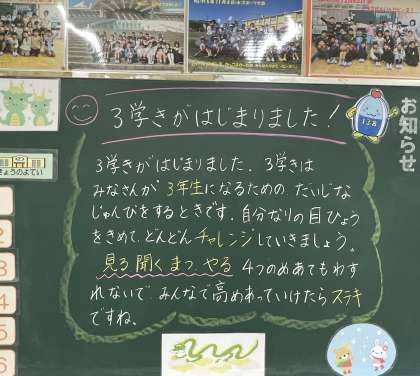 お知らせ
3学きがはじまりました!
3学きがはじまりました。3学きは
みなさんが3年生になるための たいじな
じゅんびをするときです。自分なりの目ひょう
をきめて、どんどんチャレンジしていきましょう。
見る 聞く まつ やる 4つのめあてもわす
れないで みんなで高めあっていけたらステキ
ですね。
きょうのよてい
2
3
4
5
6